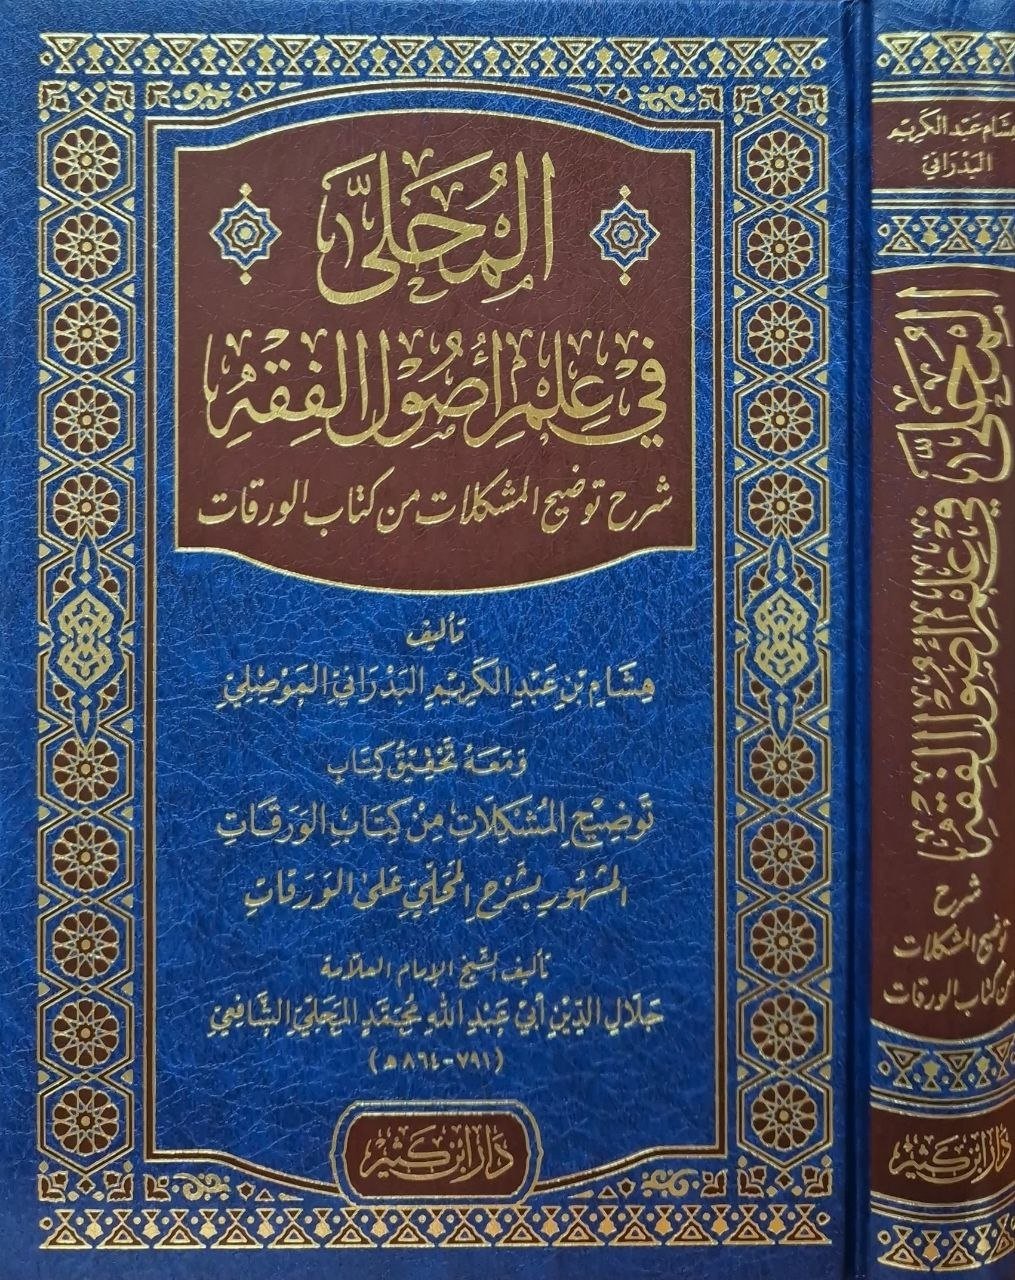 المُحَلىَّ
في عِلمِ أصُول الفِقهِ
شرح توضيح المشكلات من كتاب الورقات
تأليف
هِشَام بْن عَبْدِ الكَرِيْمِ البَدْرَانيِّ المَوْصِليِّ
وَمَعَهُ تحْقِيْقُ كِتَابِ
تَوضِيْحِ المُشكِلَاتِ مِنْ كِتَابِ الوَرَقَاتِ
المَشهُورِ بشَرْحِ المَحَلِّيِّ عَلىٰ الوَرَقاتِ
تأليف الشيخ الإمام العلامة
جَلال الدِّيْن أبي عَبْدِ اللّٰهِ مُحَمَّد المَحَلِيّ الشَّافِعيّ
(٧٩١-٨٦٤هـ)
دَار ابْن كَثِيْر
هشَام عَبْد الكَرِيْم
البَدْرَانيّ
المُحَلىَّ في عِلمِ أصُول الفِقهِ
شرح
توضيح المشكلات
من كتاب الورقات
دَار ابْن كَثِيْر